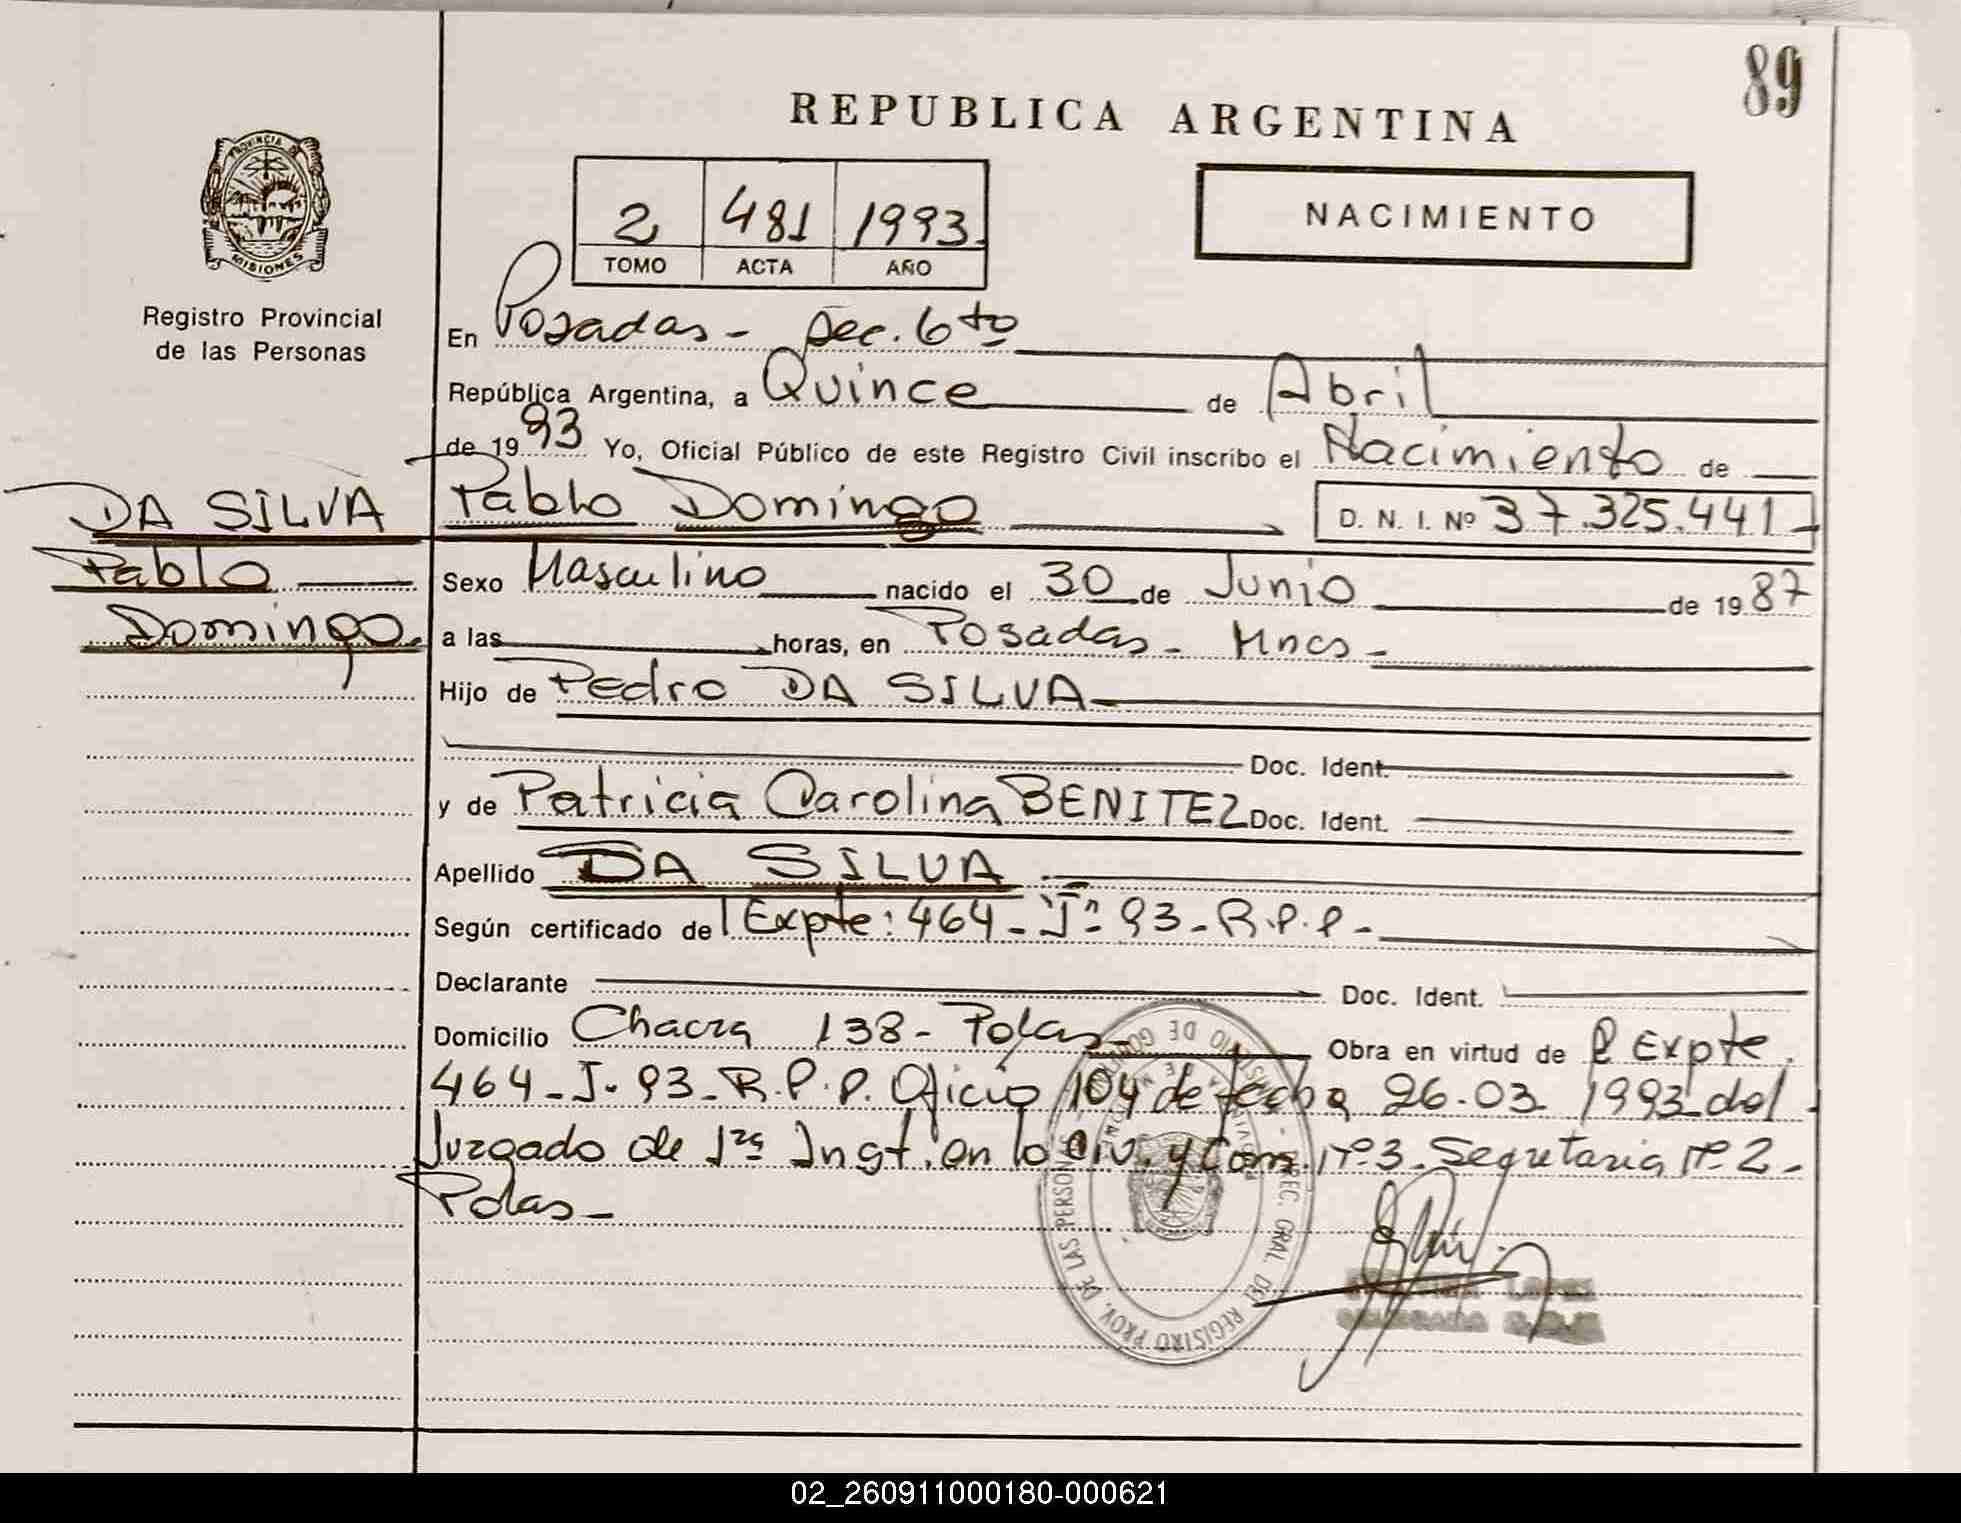 89
REPUBLICA ARGENTINA
PROVINCIA DE
MISIONES
2 481 1993
TOMO ACTA AÑO
NACIMIENTO
Registro Provincial
de las Personas
En Posadas - Sec. 6to
República Argentina, a Quince de Abril
de 1993 Yo, Oficial Público de este Registro Civil inscribo el Nacimiento de
DA SILVA Pablo Domingo D. N. I. Nº 37.325.441
Pablo Sexo Masculino nacido el 30 de Junio de 1987
Domingo. a las horas, en Posadas - Mnes -
Hijo de Pedro DA SILVA
Doc. Ident.
y de Patricia Carolina BENITEZ Doc. Ident.
Apellido DA SILVA
Según certificado de Expte: 464 - J - 93 - R.P.P. -
Declarante Doc. Ident.
Domicilio Chacra 138 - Pdas - Obra en virtud de Expte.
464 - J - 93 - R.P.P. Oficio 104 de fecha 26.03 1993 del
Juzgado de 1ra Inst. en lo Civ. y Com. Nº 3. Secretaria Nº 2 -
Pdas -
DE LAS PERSONAS
GRAL. DEL REGISTRO PROV.
02_260911000180-000621